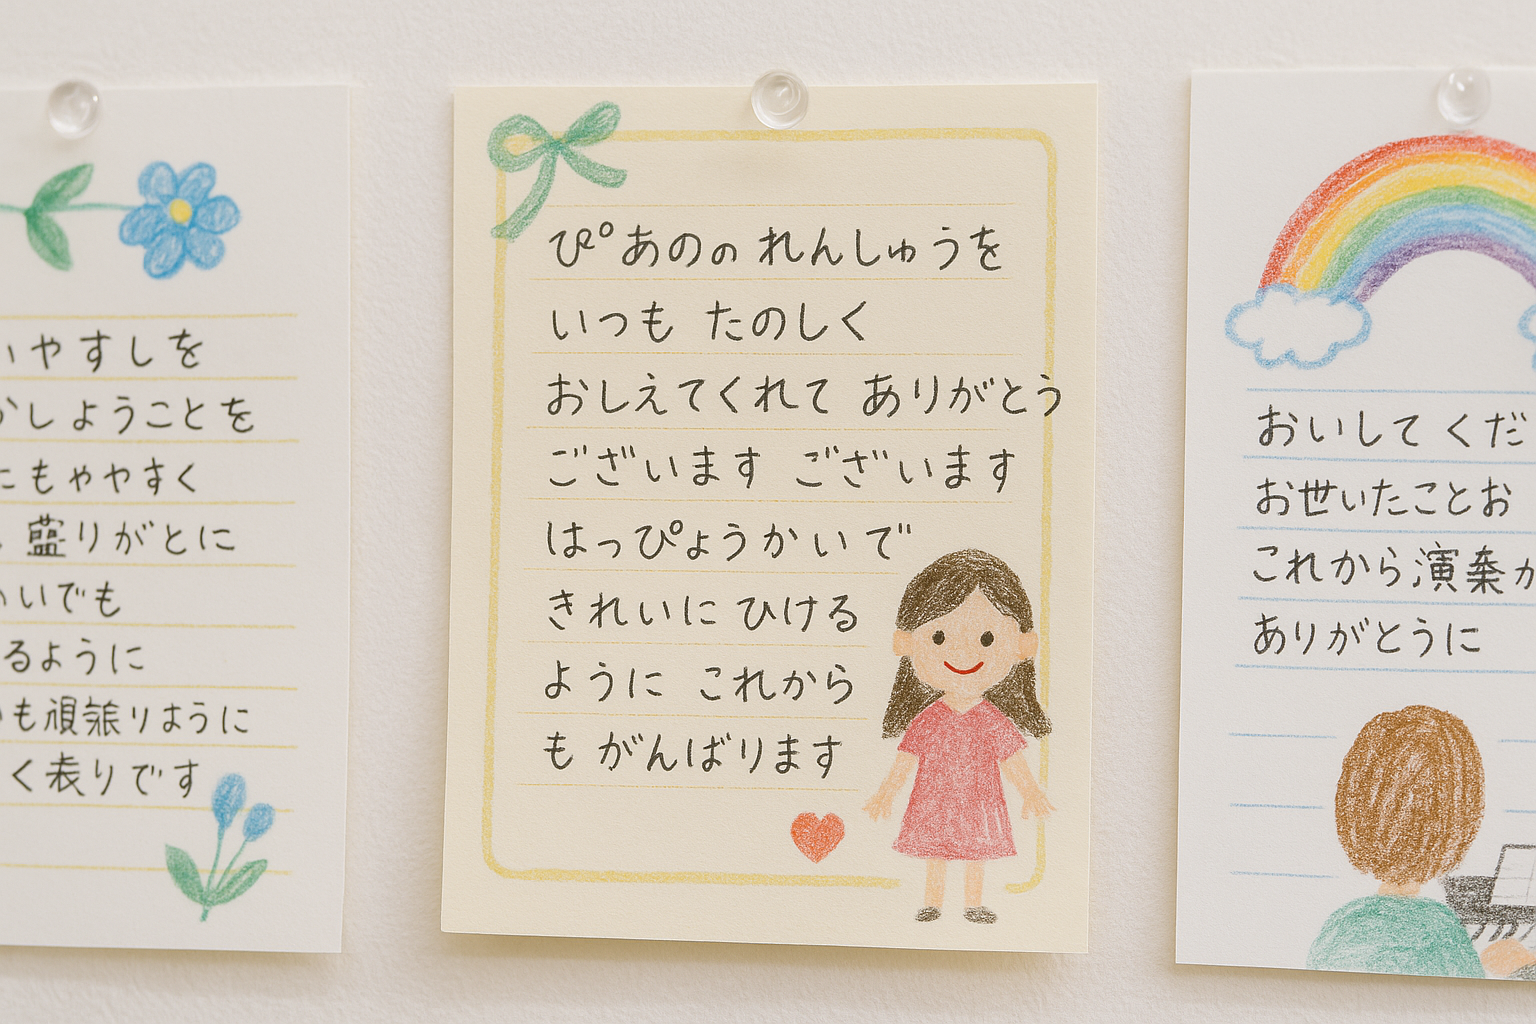 いやすしを
かしようことを
にもゃやすく
りがとに
いでも
るように
も りように
く表りです
ぴ゜あのの れんしゅうを
いつも たのしく
おしえてくれて ありがとう
ございます ございます
はっぴょうかいで
きれいに ひける
ように これから
も がんばります
おいしてくだ
お世いたことお
これから演奏か
ありがとうに